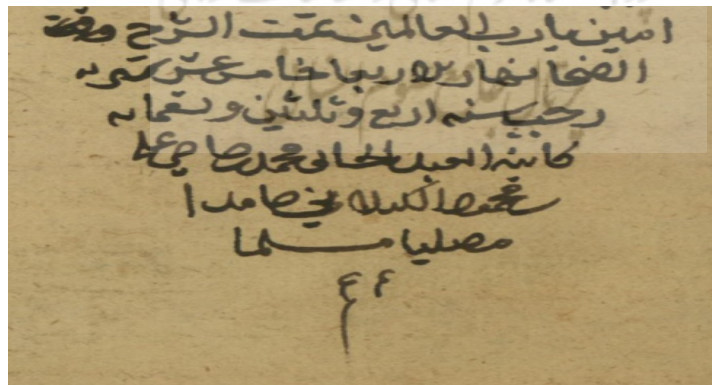 امين يارب العالمين تمت الشرح وقت
الضحا نهار الاربعا خامس عشر شهر
رجب سنه اربع وثلثين وتسعمايه
كاتبه العبد الجاني محمد حاجي
حامدا
مصليا مسلما